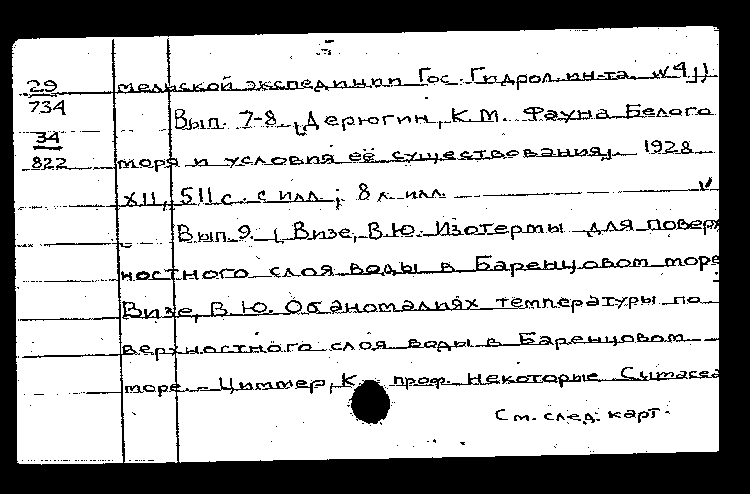 29
734
34
822
мельской экспедиции Гос. Гидрол. ин-та. №4))
Вып. 7-8. (Дерюгин, К.М. Фауна Белого
моря и условия её существования). 1928
XII, 511 с. с илл.; 8 л. илл.
Вып. 9. (Визе, В.Ю. Изотермы для поверх
ностного слоя воды в Баренцовом море
Визе, В.Ю. Об аномалиях температуры по
верхностного слоя воды в Баренцовом
море. - Циммер, К. проф. Некоторые Cumacea
См. след. карт.